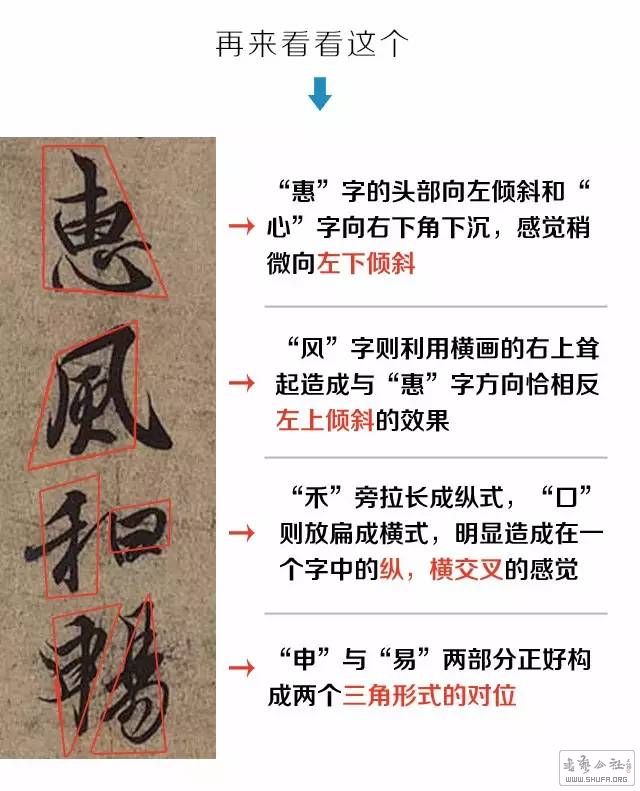 再来看看这个
惠
風
和
暢
“惠”字的头部向左倾斜和“
心”字向右下角下沉，感觉稍
微向左下倾斜
“风”字则利用横画的右上耸
起造成与“惠”字方向恰相反
左上倾斜的效果
“禾”旁拉长成纵式，“口”
则放扁成横式，明显造成在一
个字中的纵，横交叉的感觉
“申”与“易”两部分正好构
成两个三角形式的对位
书艺公社
WWW.SHUFA.ORG